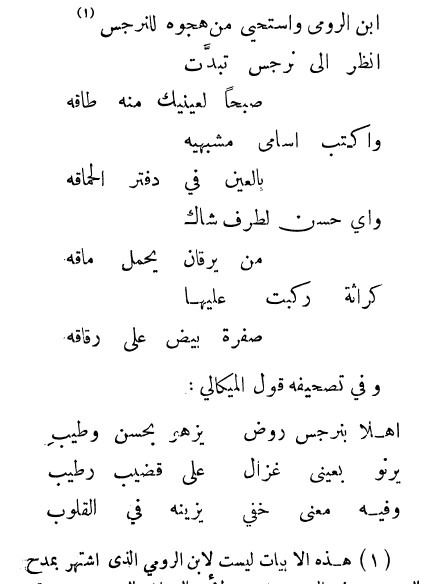 ابن الرومى واستحيى من هجوه للنرجس (١)
انظر الى نرجس تبدَّت
صبحاً لعينيك منه طاقه
واكتب اسامى مشبهيه
بالعين في دفتر الحماقه
واي حسن لطرف شاك
من يرقان يحمل ماقه
كراثة ركبت عليها
صفرة بيض على رقاقه
و في تصحيفه قول الميكالي :
اهلا بنرجس روض يزهر بحسن وطيبِ
يرنو بعينى غزال على قضيب رطيب
وفيه معنى خفي يزينه في القلوب
(١) هذه الابيات ليست لابن الرومي الذى اشتهر بمدح